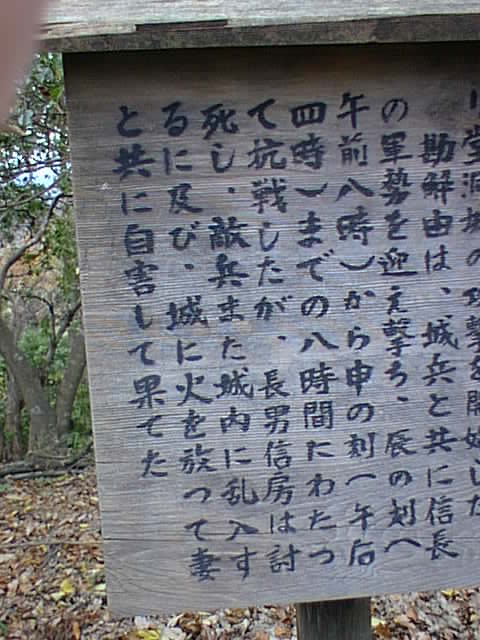 堂洞城の攻撃を開始した
勘解由は、城兵と共に信長
の軍勢を迎え撃ち、辰の刻(
午前八時)から申の刻(午后
四時)までの八時間にわたっ
て抗戦したが、長男信房は討
死し、敵兵また城内に乱入す
るに及び、城に火を放って妻
と共に自害して果てた